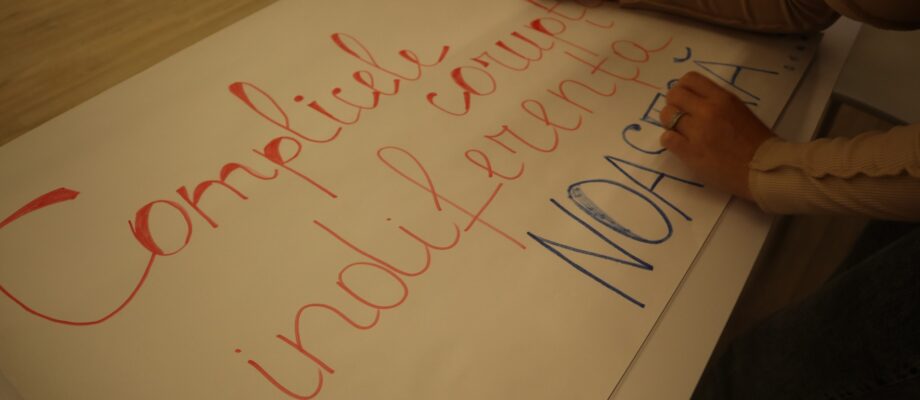 Complicele corupt
indiferenta
NOASTRĂ